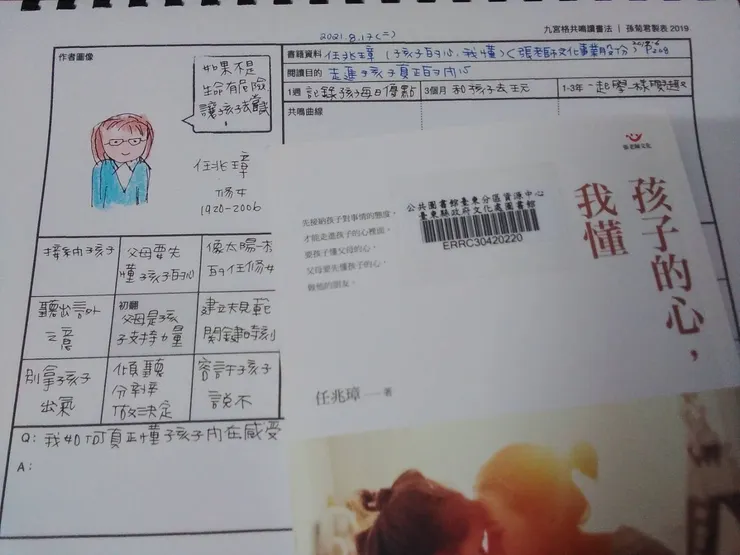 2021.8.17(二)
九宮格共鳴讀書法 | 孫菊君製表 2019
作者圖像
書籍資料 任兆璋《孩子的心,我懂》張老師文化事業股份
閱讀目的 走進孩子真正的內心
1週 記錄孩子每日優點
3個月 和孩子去玩
1-3年 一起學一樣
共鳴曲線
如果不是
生命有危險
讓孩子去嘗試
任兆璋
修女
1920-2006
接納孩子
父母要先
懂孩子的心
像太陽一樣
的任修女
聽出言外
之意
初翻
父母是孩
子支持力量
建立規範
關鍵時刻
別拿孩子
出氣
傾聽
分享
做決定
容許孩子
說不
Q: 我如何真正懂孩子內在感受
A:
張老師文化
公共圖書館臺東分區資源中心
臺東縣政府文化處圖書館
ERRC30420220
孩子的心,
我懂
先接納孩子對事情的態度,
才能走進孩子的心裡面。
要孩子懂父母的心,
父母要先懂孩子的心,
做他的朋友。
任兆璋—著